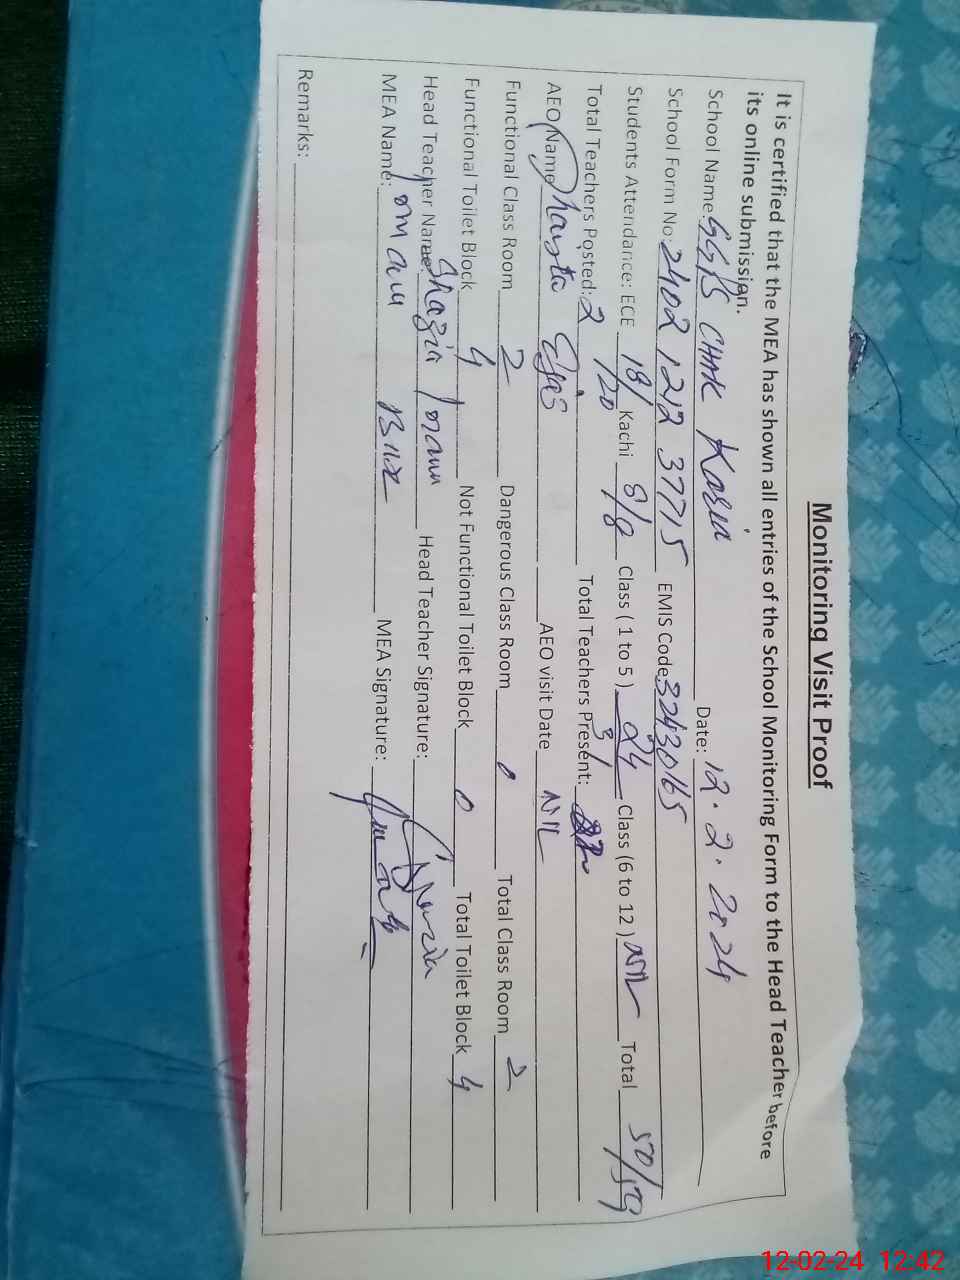 Monitoring Visit Proof
It is certified that the MEA has shown all entries of the School Monitoring Form to the Head Teacher before
its online submission.
School Name: GGPS CHAK Karim Date: 12.2.2024
School Form No 2402 1212 37715 EMIS Code: 3243065
Students Attendance: ECE 18/20 Kachi 8/8 Class ( 1 to 5 ) 24/31 Class (6 to 12 ) Nil Total 50/59
Total Teachers Posted: 2 Total Teachers Present:
AEO Name Shaista Ejas AEO visit Date Nil
Functional Class Room 2 Dangerous Class Room 0 Total Class Room 2
Functional Toilet Block 4 Not Functional Toilet Block 0 Total Toilet Block 4
Head Teacher Name: Shazia Head Teacher Signature: Shazia
MEA Name: Imam Bux MEA Signature:
Remarks:
12-02-24 12:42